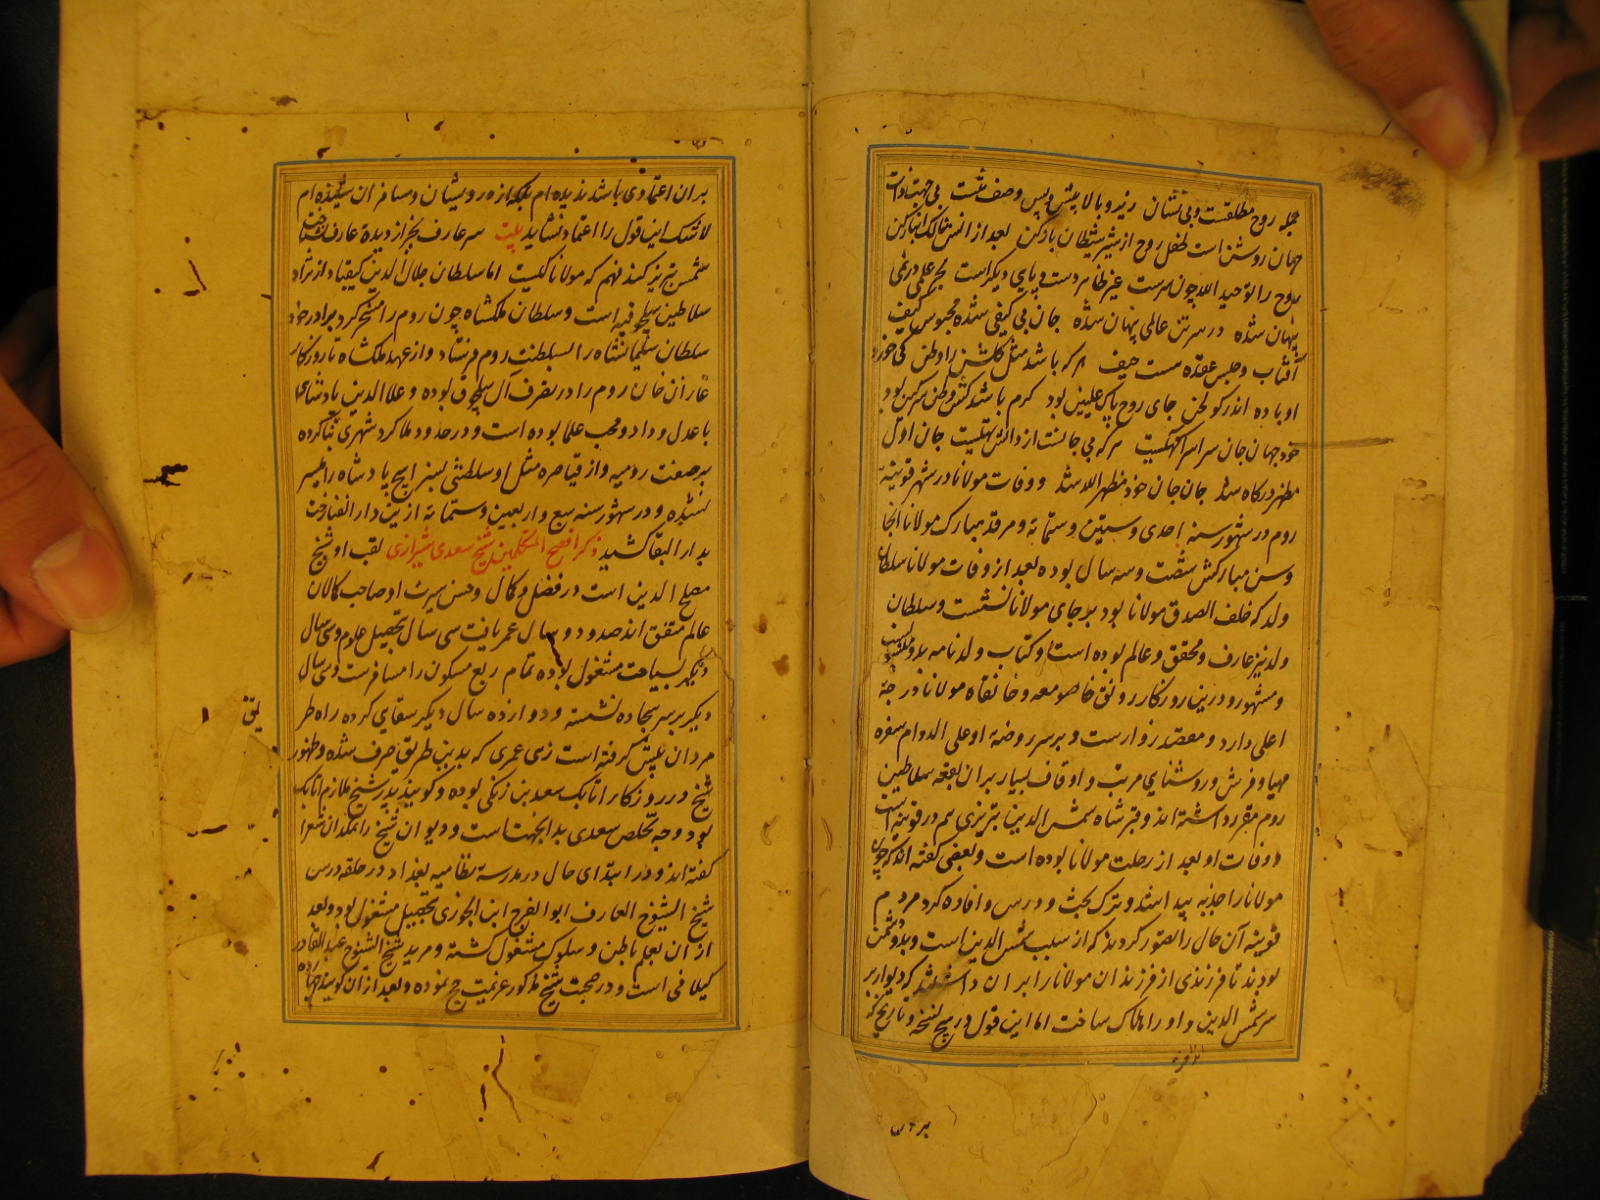 جمله روح مطلقست و بی نشان زیر و بالا پیش و پس وصف تنست بی جهتها ذات
جهان روشن است طفل روح از شیر شیطان باز کن بعد از انش با ملک انباز کن
روح را توحید الله چون سرست غیر ظاهر دست و پایی دیگر است بحر علمی در نمی
پنهان شده در سه گز تن عالمی پنهان شده جان بی کیفی شده محبوس کیف
آفتاب و حبس عقده اینت حیف هر که باشد مثل گلشن را وطن کی خورد
او باده اندر کولخن جای روح پاک علیین بود کرم باشد کش وطن سرگین بود
خود جهان جان سراسر آگهیست هر که بی جانست از دانش تهیست جان اول
مظهر درگاه شد جان جان خود مظهر الله شد و وفات مولانا در شهر قونیه
روم در شهور سنه احدی و ستین و ستمایه و مرقد مبارک مولانا آنجا
و سن مبارکش شصت و سه سال بوده بعد از وفات مولانا سلطان
ولد که خلف الصدق مولانا بود بر جای مولانا نشست و سلطان
ولد نیز عارف و محقق و عالم بوده است و کتاب ولدنامه بدو منسوب
و مشهور و درین روزگار رونق خاص صومعه و خانقاه مولانا درجه
اعلی دارد و مقصد زوارست و بر سر روضه او علی الدوام سفره
مهیا و فرش و روشنایی مرتب و اوقاف بسیار بران بقعه سلاطین
روم مقرر داشته اند و قبر شاه شمس الدین تبریزی هم در قونیه است
و وفات او بعد از رحلت مولانا بوده است و بعضی گفته اند که چون
مولانا را جذبه پیدا شد و ترک بحث و درس و افاده کرد مردم
قونیه آن حال را تصور کردند که از سبب شمس الدین است و بدو دشمن
بودند تا فرزندی از فرزندان مولانا را بران داشتند که دیوار بر
سر شمس الدین و او را هلاک ساخت اما این قول در هیچ نسخه و تاریخ که
بران
بران اعتمادی باشد ندیده ام بلکه از درویشان و مسافران شنیده ام
لا شک این قول را اعتماد نشاید بیت سر عارف بجز از دیده عارف نشناخت
شمس تبریز کند فهم که مولانا کیست اما سلطان جلال الدین کیقباد از نژاد
سلاطین سلجوقیه است و سلطان ملکشاه چون روم را مسخر کرد برادر خود
سلطان سلیمانشاه را بسلطنت روم فرستاد و از عهد ملکشاه تا روزگار
غازان خان روم را در تصرف آل سلجوق بوده و علا الدین پادشاهی
با عدل و داد و محب علما بوده است و در حدود ملاکرد شهری بنا کرده
بر صفت رومیه و از قیاصره مثل او سلطنتی بسزا هیچ پادشاه را میسر
نشده و در شهور سنه سبع و اربعین و ستمایه ازین دار الفنا رخت
بدار البقا کشید ذکر افصح المتکلمین شیخ سعدی شیرازی لقب او شیخ
مصلح الدین است در فضل و کمال و حسن سیرت او صاحب کمالان
عالم متفق اند صد و دو سال عمر یافت سی سال تحصیل علوم و سی سال
دیگر بسیاحت مشغول بوده تمام ربع مسکون را مسافرست و سی سال
دیگر بر سر سجاده نشسته و دوازده سال دیگر سقایی کرده راه طر
یق
مردان پیش گرفته است زهی عمری که بدین طریق صرف شده و ظهور
شیخ در روزگار اتابک سعد بن زنگی بوده و گویند پدر شیخ ملازم اتابک
بود و وجه تخلص سعدی بدانجهتست و دیوان شیخ را نمکدان شعرا
گفته اند و در ابتدای حال در مدرسه نظامیه بغداد در حلقه درس
شیخ الشیوخ العارف ابو الفرج ابن الجوزی تحصیل مشغول بود و بعد
از ان بعلم باطن و سلوک مشغول گشته و مرید شیخ الشیوخ عبد القادر
گیلانی است و در صحبت شیخ مذکور عزیمت حج نموده و بعد از ان گویند